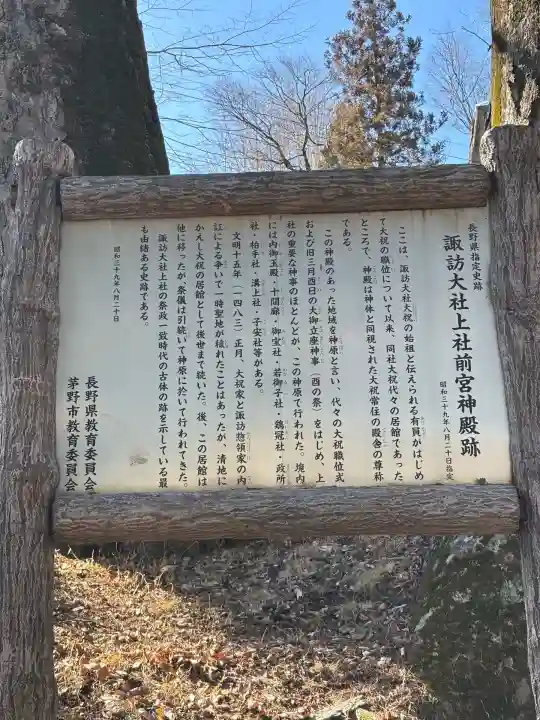 長野県指定史跡
諏訪大社上社前宮神殿跡
昭和三十九年八月二十日指定
ここは、諏訪大社大祝の始祖と伝えられる有員がはじめ
て大祝の職位について以来、同社大祝代々の居館であった
ところで、神殿は神体と同視された大祝常住の殿舎の尊称
である。
この神殿のあった地域を神原と言い、代々の大祝職位式
および旧三月酉日の大御立座神事（酉の祭）をはじめ、上
社の重要な神事のほとんどが、この神原で行われた。境内
には内御玉殿・十間廊・御室社・若御子社・鶏冠社・政所
社・柏手社・溝上社・子安社等がある。
文明十五年（一四八三）正月、大祝家と諏訪惣領家の内
訌による争いで一時聖地が穢れたことはあったが、清地に
かえし大祝の居館として後世まで続いた。後、この居館は
他に移ったが、祭儀は引続いて神原に於いて行われてきた。
諏訪大社上社の祭政一致時代の古体の跡を示している最
も由緒ある史跡である。
昭和三十九年八月二十日
長野県教育委員会
茅野市教育委員会